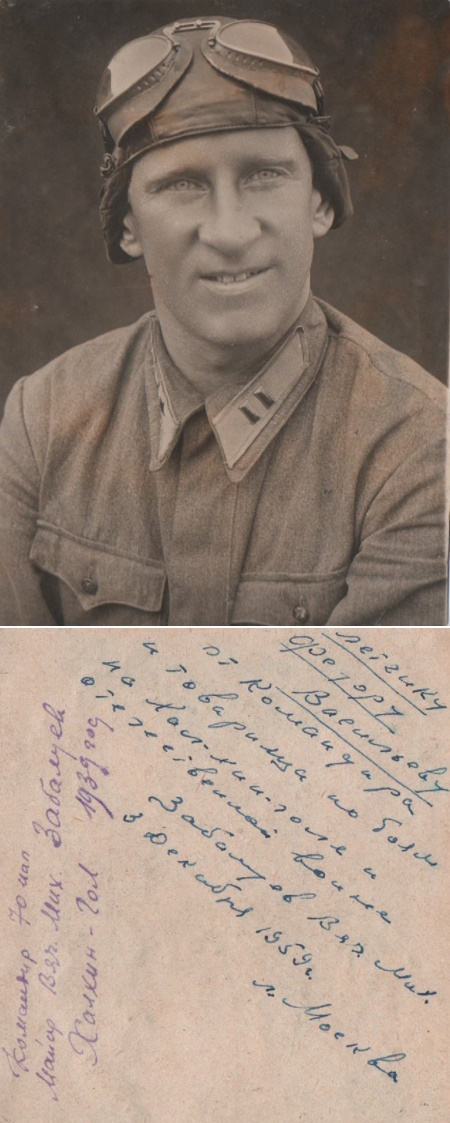 Командир 70 иап
Майор Вяч. Мих. Забалуев
Халхин-Гол 1939 год
летчику
Федору Васильеву
от Командира
и товарища по боям
на Хол-хин-голе и
отечественной войне
Забалуев Вяч. Мих.
3 Декабря 1959 г.
г. Москва